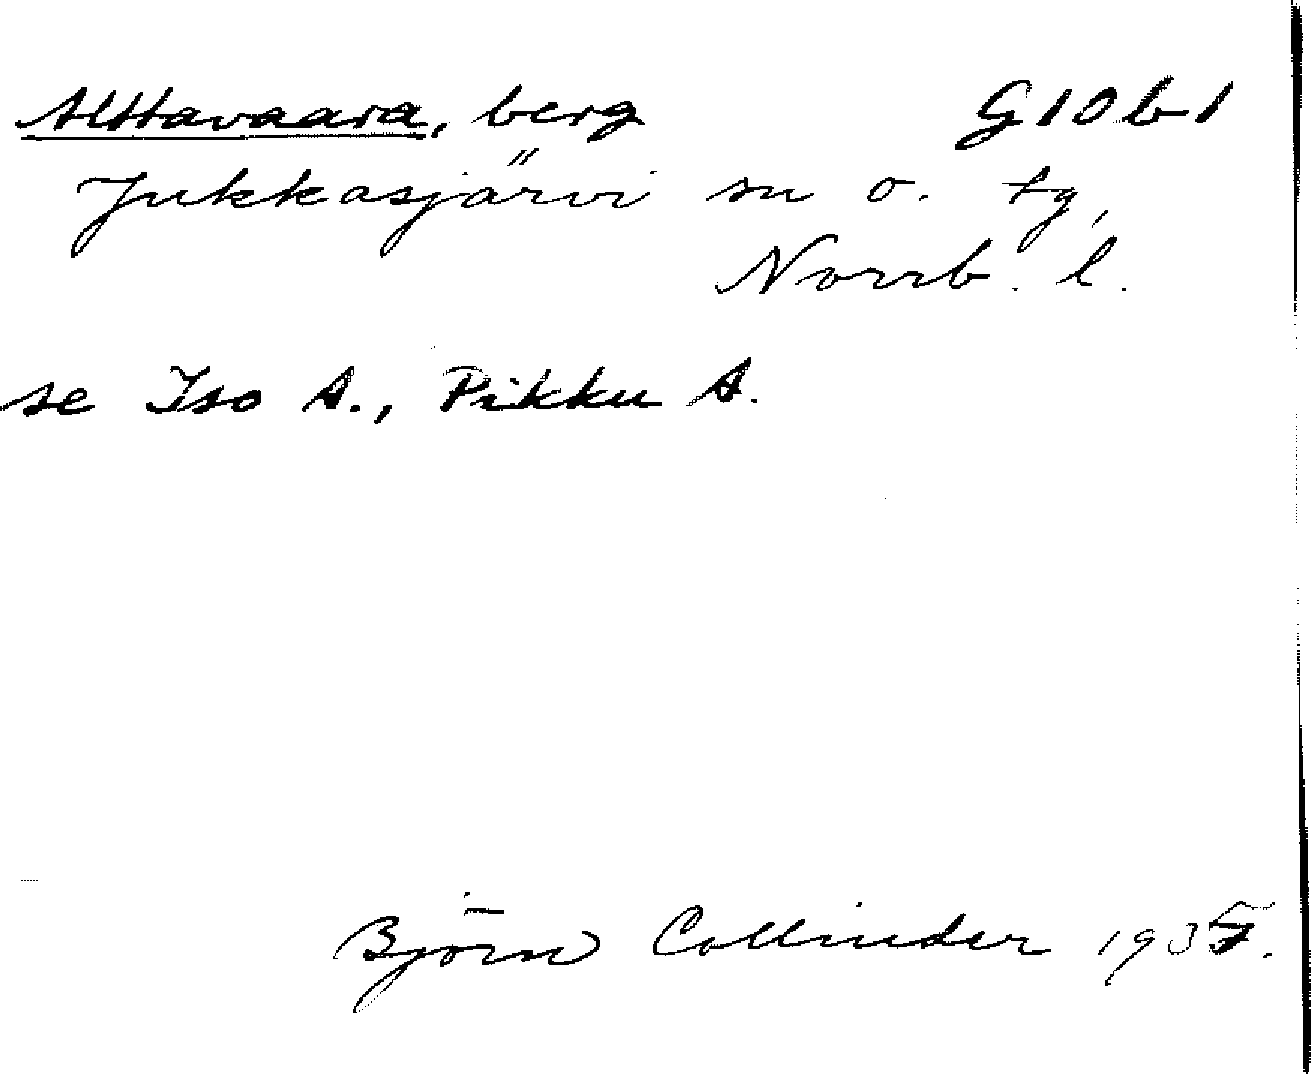 Alttavaara, berg G10b1
Jukkasjärvi sn o. tg,
Norrb. l.
se Iso A., Pikku A.
Björn Collinder